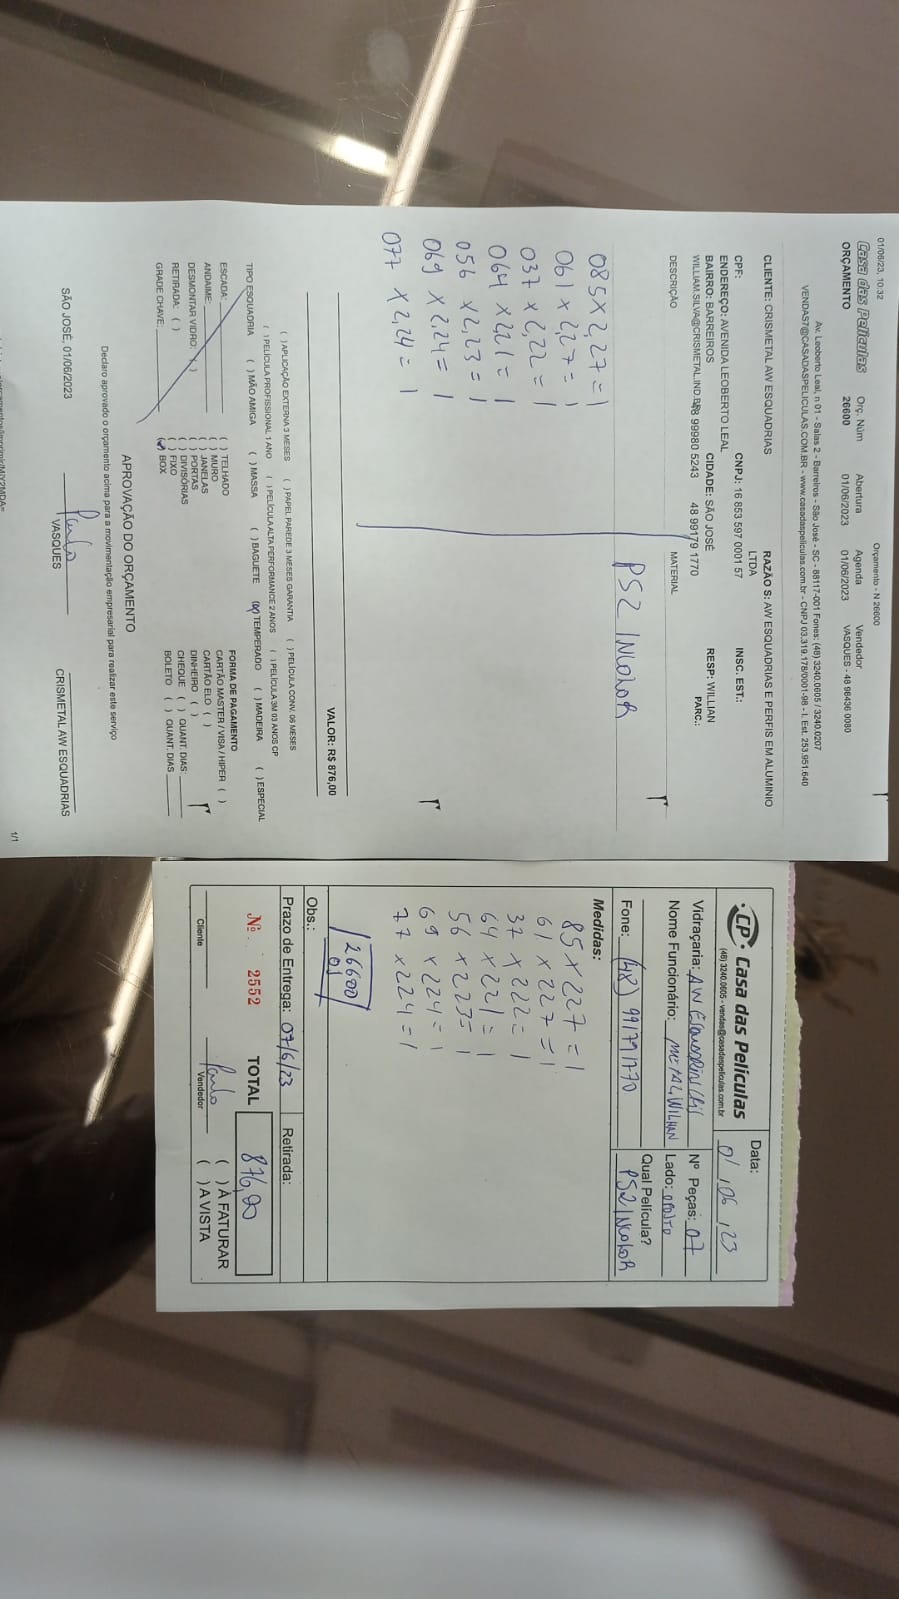 01/06/23, 10:32
Orçamento - N 26600
Casa das Películas
ORÇAMENTO
Orç. Núm
26600
Abertura
01/06/2023
Agenda
01/06/2023
Vendedor
VASQUES - 48 98436 0080
Av. Leoberto Leal, n 01 - Salas 2 - Barreiros - São José - SC - 88117-001 Fones: (48) 3240.0605 / 3240.0207
VENDAS7@CASADASPELICULAS.COM.BR - www.casadaspeliculas.com.br - CNPJ 03.319.178/0001-98 - I. Est. 253.951.640
CLIENTE: CRISMETAL AW ESQUADRIAS
RAZÃO S: AW ESQUADRIAS E PERFIS EM ALUMINIO LTDA
CPF:
CNPJ: 16 853 597 0001 57
INSC. EST.:
ENDEREÇO: AVENIDA LEOBERTO LEAL
BAIRRO: BARREIROS
CIDADE: SÃO JOSÉ
RESP: WILLIAN
WILLIAM.SILVA@CRISMETAL.IND.BR
48 99980 5243
48 99179 1770
PARC.:
DESCRIÇÃO
MATERIAL
PS2 INCOLOR
085 x 2,27 = 1
061 x 2,27 = 1
037 x 2,22 = 1
064 x 2,21 = 1
056 x 2,23 = 1
069 x 2,24 = 1
077 x 2,24 = 1
VALOR: R$ 876,00
( ) APLICAÇÃO EXTERNA 3 MESES ( ) PAPEL PAREDE 3 MESES GARANTIA ( ) PELÍCULA CONV. 06 MESES
( ) PELÍCULA PROFISSIONAL 1 ANO ( ) PELÍCULA ALTA PERFORMANCE 2 ANOS ( ) PELÍCULA 3M 03 ANOS CP
TIPO ESQUADRIA ( ) MÃO AMIGA ( ) MASSA ( ) BAGUETE (x) TEMPERADO ( ) MADEIRA ( ) ESPECIAL
ESCADA:
ANDAIME:
DESMONTAR VIDRO: ( )
RETIRADA: ( )
GRADE CHAVE:
( ) TELHADO
( ) MURO
( ) JANELAS
( ) PORTAS
( ) DIVISÓRIAS
( ) FIXO
(✓) BOX
FORMA DE PAGAMENTO
CARTÃO MASTER / VISA / HIPER ( )
CARTÃO ELO ( )
DINHEIRO ( )
CHEQUE ( ) QUANT. DIAS:
BOLETO ( ) QUANT. DIAS
APROVAÇÃO DO ORÇAMENTO
Declaro aprovado o orçamento acima para a movimentação empresarial para realizar este serviço
SÃO JOSÉ, 01/06/2023
Paulo
VASQUES
CRISMETAL AW ESQUADRIAS
1/1
CP Casa das Películas
(48) 3240.0605 - vendas@casadaspeliculas.com.br
Data:
01,06,23
Vidraçaria: AW
Nº Peças: 07
Nome Funcionário:
Lado: OPOSTO
Fone: (48) 991791770
Qual Película?
PS2 INCOLOR
Medidas:
85 x 227 = 1
61 x 227 = 1
37 x 222 = 1
64 x 221 = 1
56 x 223 = 1
69 x 224 = 1
77 x 224 = 1
26600
Obs.:
Prazo de Entrega: 07/6/23
Retirada:
Nº 2552
TOTAL
876,00
Paulo
Cliente
Vendedor
( ) À FATURAR
( ) A VISTA